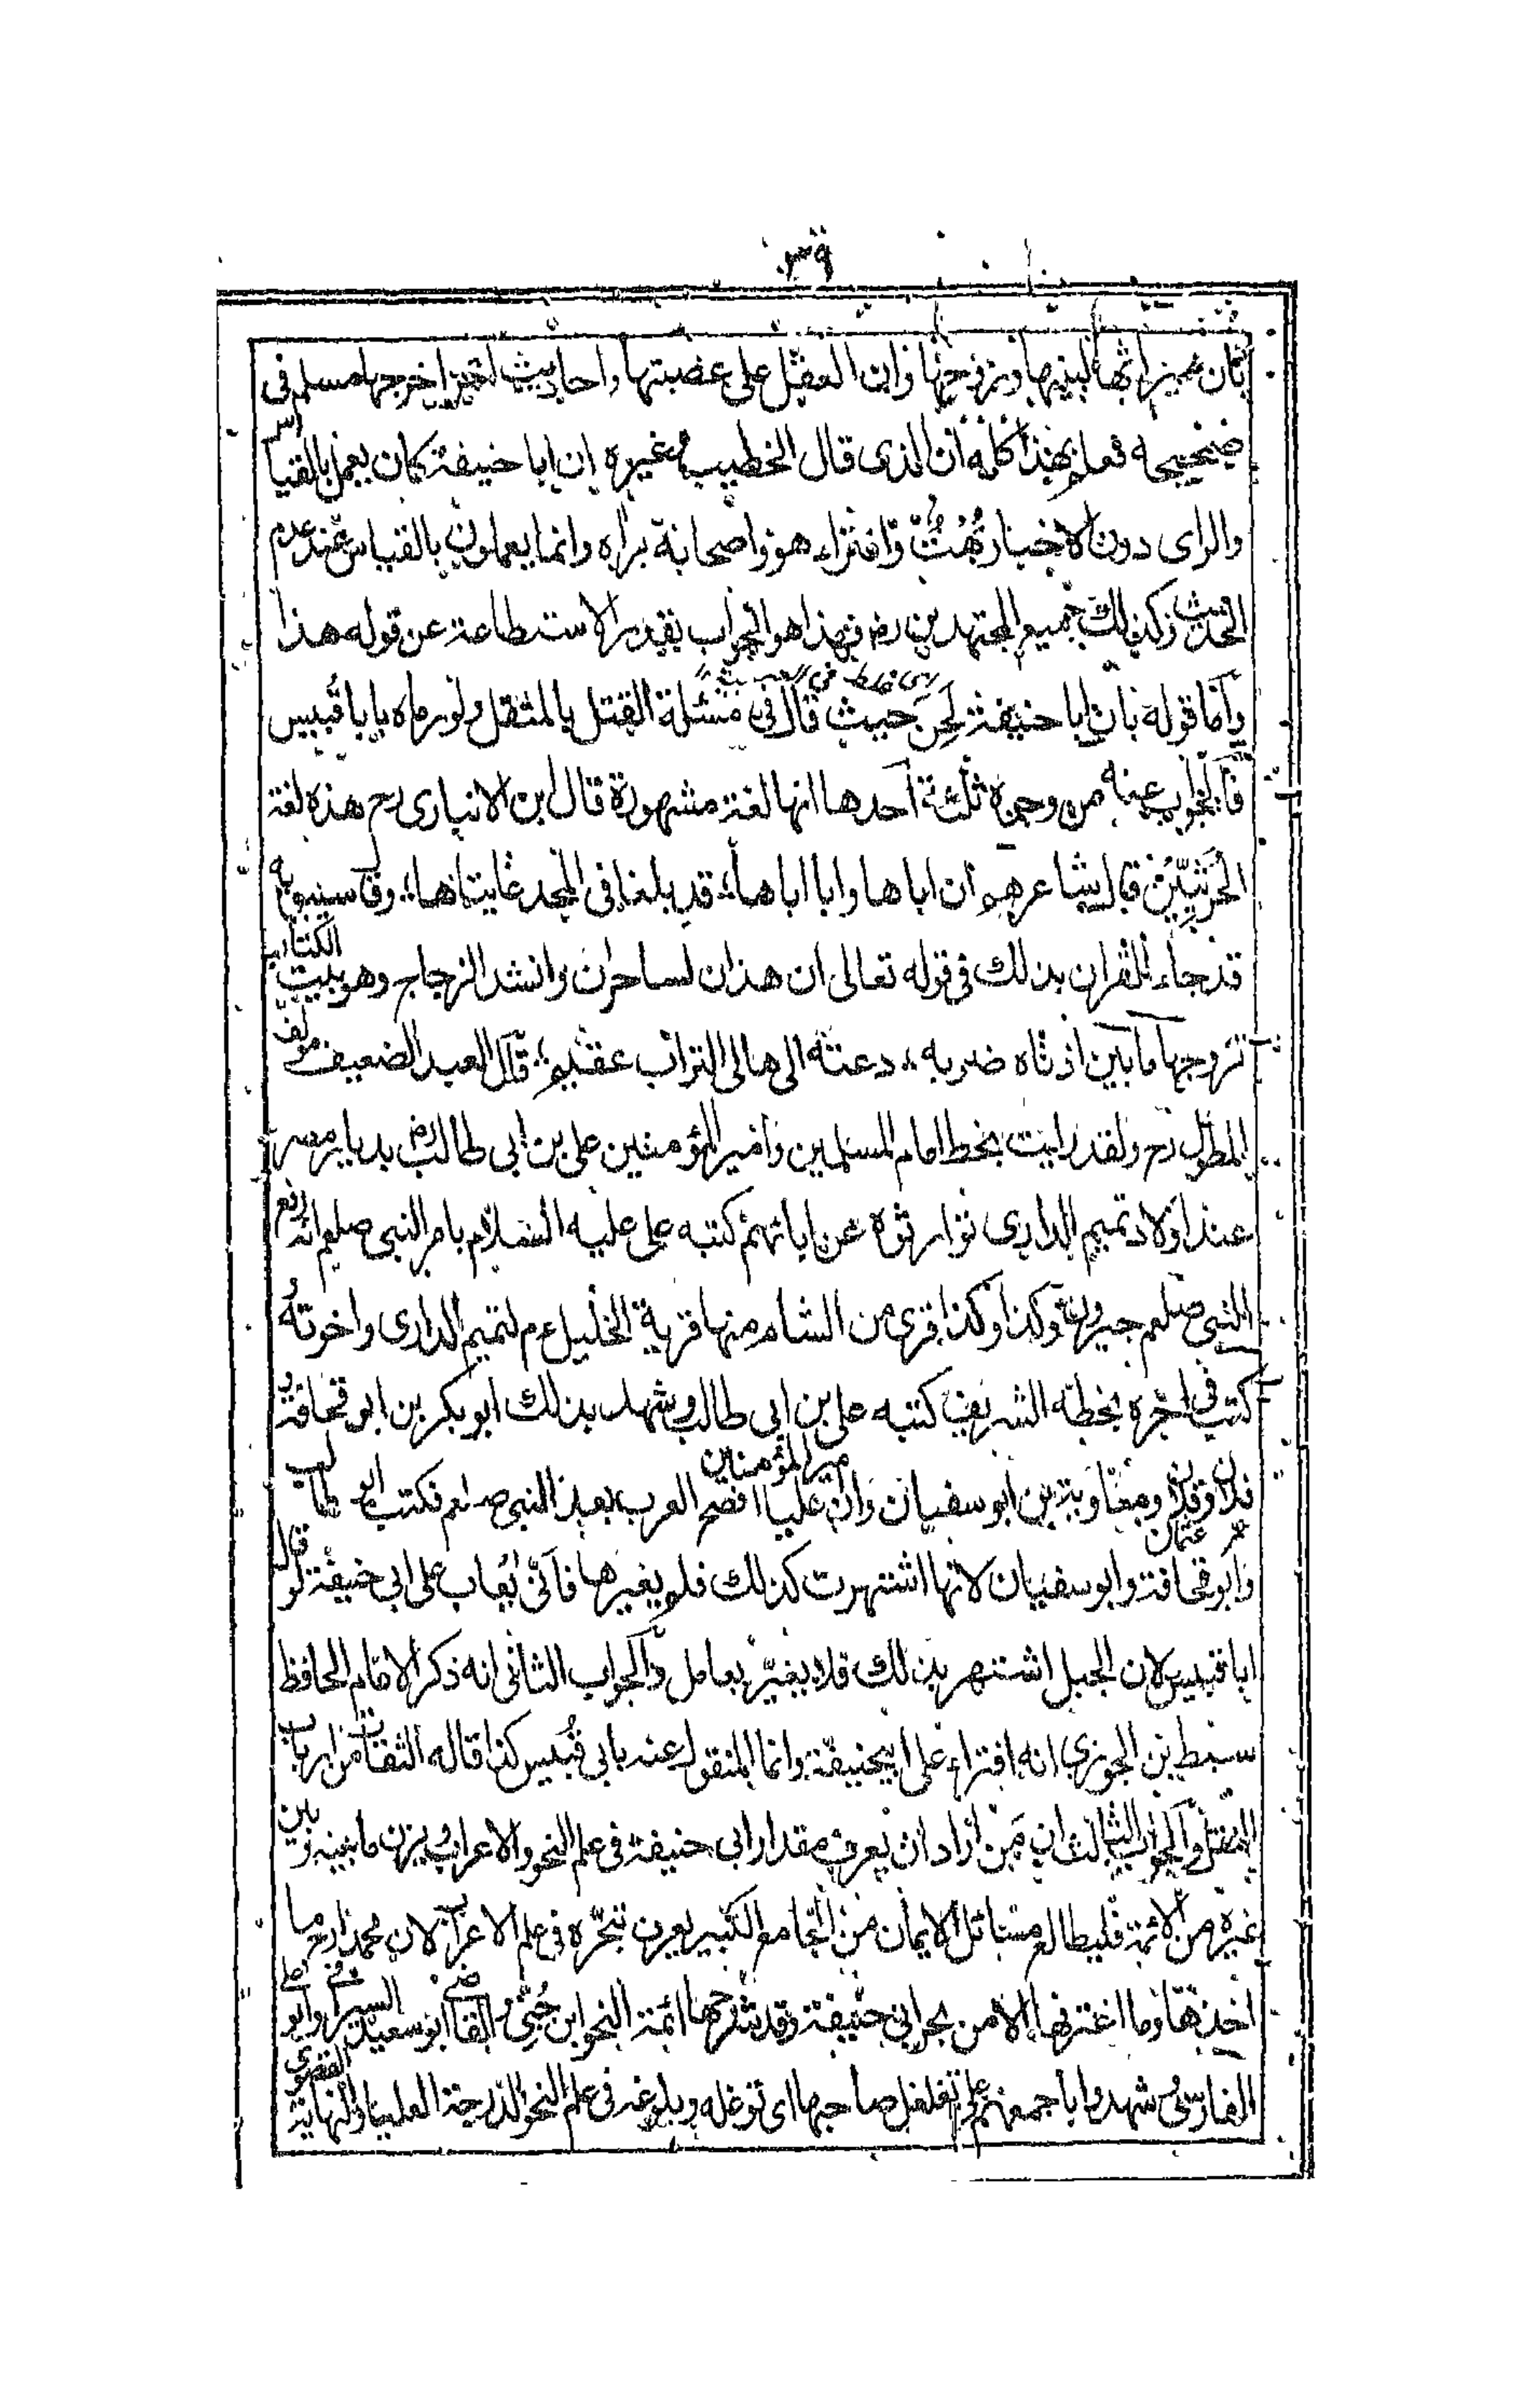 ٣٩
بان ميراثها لبنيها وزوجها وان العقل على عصبتها واحاديث اخر اخرجها مسلم فى
صحيحه فعلم بهذا كله ان الذى قال الخطيب وغيره ان ابا حنيفة كان يعمل بالقياس
والراى دون الاخبار بُهُتٌ وّافتراء هو واصحابه براه وانما يعملون بالقياس عند عدم
الحديث وكذلك جميع المجتهدين رض فهذا هو الجواب بقدر الاستطاعة عن قوله هذا
وآما قوله بان ابا حنيفة لَحِنَ حيث قال فى مسئلة القتل بالمثقل ولو رماه بابا قُبيس
فآلجواب عنه من وجوه ثلثة آحدها انها لغة مشهورة قال ابن الانبارى رح هذه لغة
الحَرثيّين قال شاعرهم ان اباها وابا اباها؛ قد بلغا فى المجد غايتاها؛ وقا سيبويه
قد جاء القران بذلك فى قوله تعالى ان هذان لساحران وانشد الزجاج وهو بيت الكتاب
تزوجها ما بين اذناه ضربه ،، دعته الى هالى التراب عقيم؛ قآل العبد الضعيف مولف
المطول رح ولقد رايت بخط امام المسلمين وامير المؤمنين على بن ابى طالب رض بديار مصر
عند اولاد تميم الدارى توارثوه عن ابائهم كتبه على عليه السلام بامر النبى صلعم انه
النبى صلعم جيرون وكذا وكذا قرى من الشام منها قرية الخليل عم لتميم الدارى واخوته
كتب فى اخره بخطه الشريف كتبه على بن ابى طالب وشهد بذلك ابو بكر بن ابو قحافة و
فلان وفلان ومعاوية بن ابو سفيان وان عليا امير المؤمنين افصح العرب بعد النبى صلعم فكتب ابو طالب
عمر عثمان
وابو قحافة وابو سفيان لانها اشتهرت كذلك فلم يغيرها فآنّى يُعاب على ابى حنيفة لو قال
ابا قبيس لان الجبل اشتهر بذلك فلا يغيّر بعامل وّآلجواب الثانى انه ذكر الامام الحافظ
سبط بن الجوزى انه افتراء على ابيحنيفة وانما المنقول عنه بابى قُبيس كذا قاله الثقات من ارباب
النقل وآلجواب الثالث ان مَن اراد ان يعرف مقدار ابى حنيفة فى علم النحو والاعراب ويزن ما بينه وبين
غيره من الائمة فليطالع مسائل الايمان من الجامع الكبير يعرف تبحّره فى علم الاعراب لان محمدا رح ما
اخذها وما اغترفها الا من بحر ابى حنيفة وقد شرحها ائمة النحو ابن جُنّى والقاضى ابو سعيد السيرافى وابو على
الفارسى شهدوا باجمعهم على تغلغل صاحبها اى توغله وبلوغه فى علم النحو الدرجة العليا والنهاية القصوى